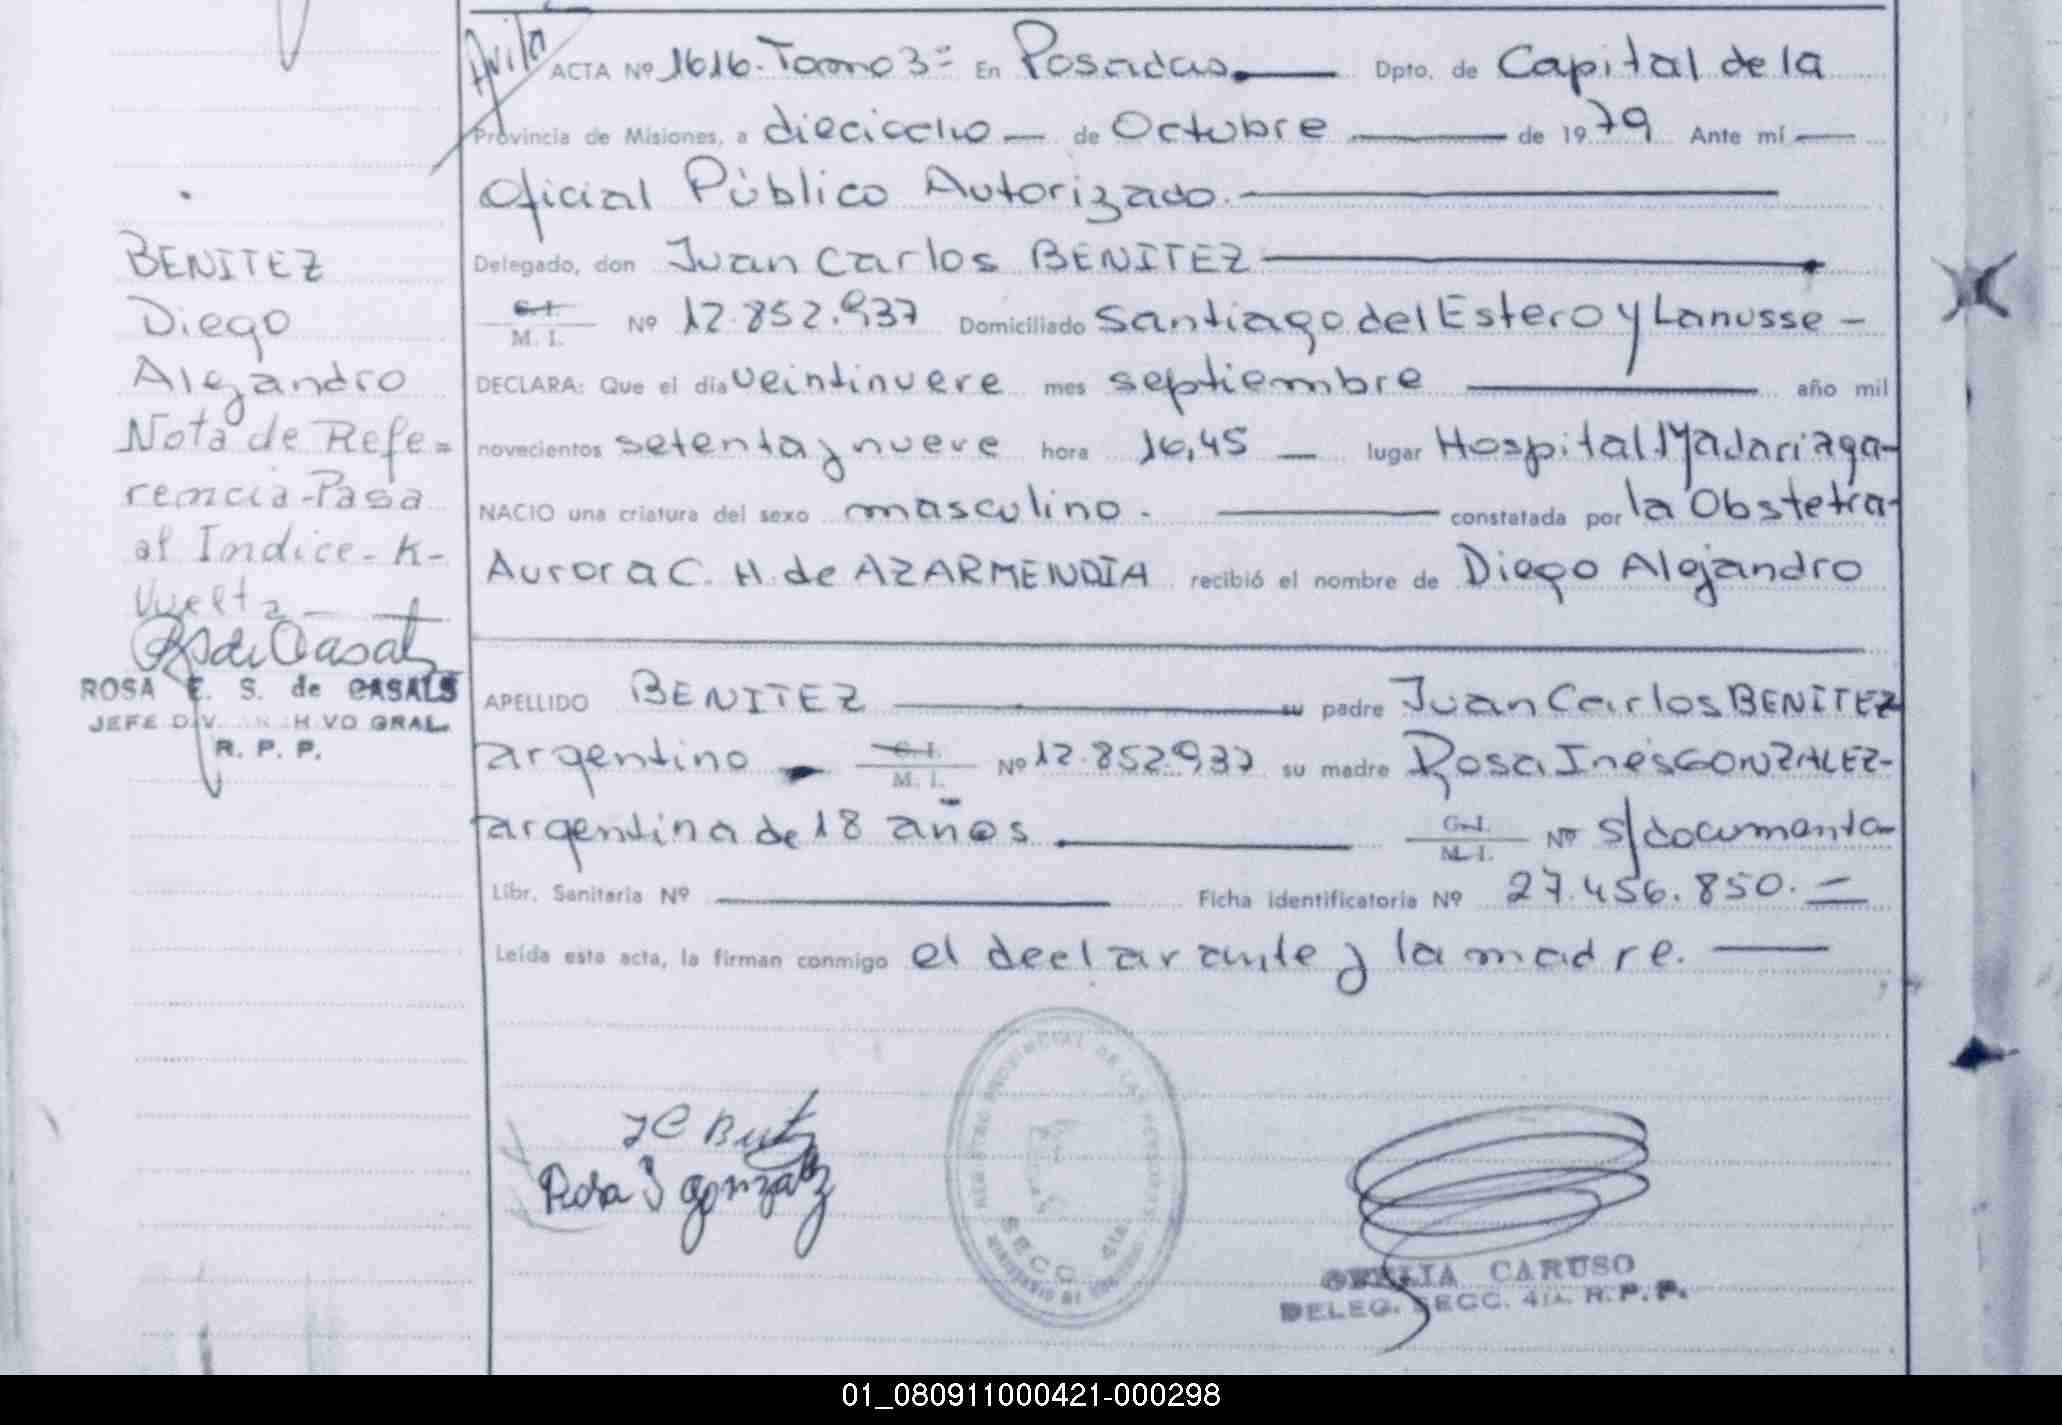 Avila
ACTA Nº 1616. Tomo 3º En Posadas Dpto. de Capital de la
Provincia de Misiones, a dieciocho de Octubre de 1979 Ante mí
Oficial Público Autorizado.
Delegado, don Juan Carlos BENITEZ
C.I. M. I. Nº 12.852.937 Domiciliado Santiago del Estero y Lanusse -
DECLARA: Que el día veintinueve mes septiembre año mil
novecientos setenta y nueve hora 16,45 lugar Hospital Madariaga-
NACIO una criatura del sexo masculino. constatada por la Obstetra-
Aurora C. H. de AZARMENDIA recibió el nombre de Diego Alejandro
APELLIDO BENITEZ su padre Juan Carlos BENITEZ
argentino C.I. M. I. Nº 12.852.937 su madre Rosa Inés GONZALEZ-
argentina de 18 años C.I. M.I. Nº S/documento-
Libr. Sanitaria Nº Ficha identificatoria Nº 27.456.850.
Leída esta acta, la firman conmigo el declarante y la madre.
BENITEZ
Diego
Alejandro
Nota de Refe=
rencia-Pasa
al Indice-K-
Vuelta
ROSA E. S. de CASALS
JEFE DIV. ARCHIVO GRAL.
R. P. P.
Rosa I gonzalez
REGISTRO PROVINCIAL DE LAS PERSONAS
SECC. 4ta
OFELIA CARUSO
DELEG. SECC. 4ta. R.P.P.
01_080911000421-000298